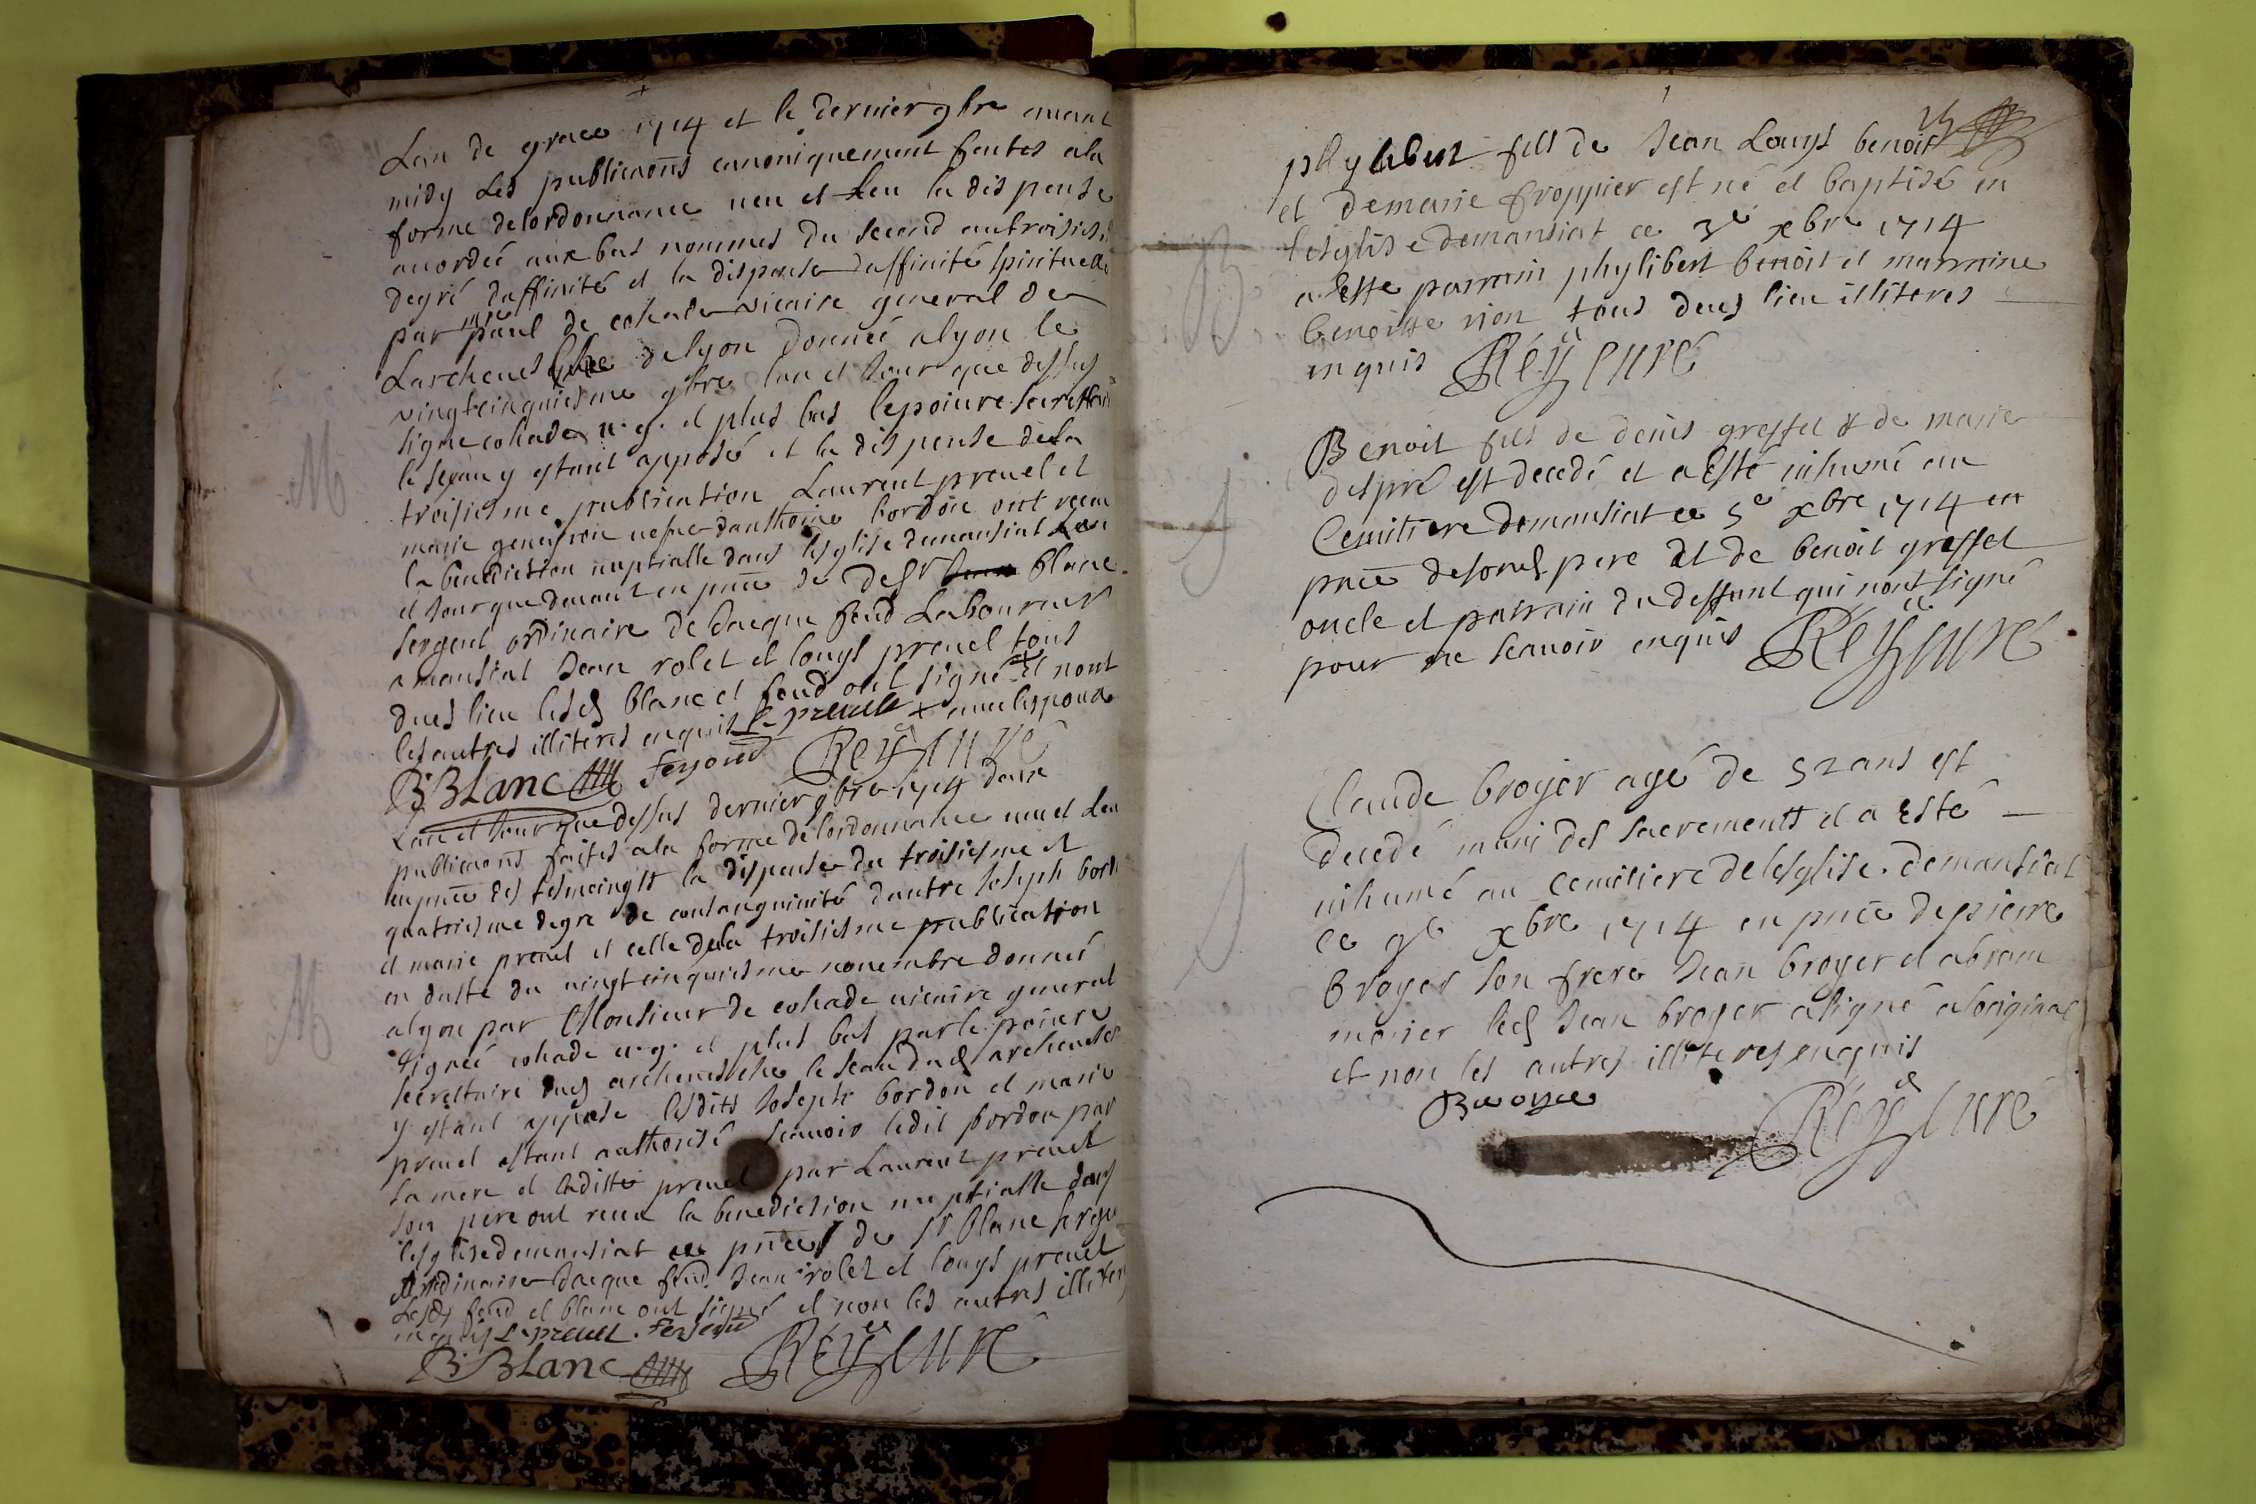 Lan de grace 1714 et le dernier 9bre auant
midy les publicaons canoniquement faites ala
forme delordonnance ueu et leu la dispense
accordée aux bas nommes du second autroisies
degré daffinité et la dispense daffinité spirituelle
par mre paul de cohade vicaire general de
Larcheuesche de lyon donnée alyon le
vingtcinquiesme 9bre lan et jour que dessus
signe cohade u. g. et plus bas lepoiure secrettaire
le sceau y estant apposé et la dispense dela
troisiesme publication Laurent preuel et
marie uefue danthoine bordon ont receu
la benediction nuptialle dans lesglise demansiat Lan
et jour que deuant en pnce de de sr blanc
sergent ordinaire de Jacque feud Laboureur
a mansiat Jean rolet et louys preuel tous
dud lieu lesd blanc et feud ont signé et nont
les autres illiteres enquis L preuel + auec lespouse
B BLanc feyoud Reÿ curé
Lan et jour que dessus dernier 9bre 1714 deux
publicaons faites ala forme de lordonnance ueu et leu
en pnce des tesmoings la dispense du troisiesme et
quatriesme degre de consanguinité dautre Joseph bordon
et marie preuel et celle dela troisiesme publication
en datte du uingtcinquiesme nouembre donnée
alyon par Monsieur de cohade uicaire general
signée cohade u. g. et plus bas par le poiure
secrettaire dud archeuesche le sceau dud archeuesche
y estant apposé lesdits Joseph bordon et marie
preuel estant authorisé scauoir ledit bordon par
sa mere et laditte preuel par Laurent preuel
son pere ont receu la benediction nuptialle dans
lesglise demansiat en pnce de sr blanc sergent
ordinaire Jacque feud Jean rolet et louys preuel
Lesd feud et blanc ont signé et non les autres illiteres
enquis L preuel. feyoud
B BLanc Reÿ curé
M
M
phylibert fils de Jean Louys benoit
et demarie froppier est né et baptisé en
lesglise demansiat ce 3e xbre 1714
a esté parrain phylibert benoit et marraine
benoitte rion tous dud lieu illiteres
enquis Reÿ curé
B
Benoit fils de denis greffet & de marie
despré est decedé et a esté inhumé au
Cemitiere demansiat ce 5e xbre 1714 en
pnce desond pere et de benoit greffet
oncle et parrain du deffunt qui nont signé
pour ne scauoir enquis Reÿ curé
S
Claude broyer agé de 52 ans est
decedé muni des sacrements et a esté
inhumé au cemitiere delesglise demansiat
ce 9e xbre 1714 en pnce depierre
broyer son frere Jean broyer et abram
monier led Jean broyer a signé aloriginal
et non les autres illiteres enquis
Broyer
Reÿ curé
S